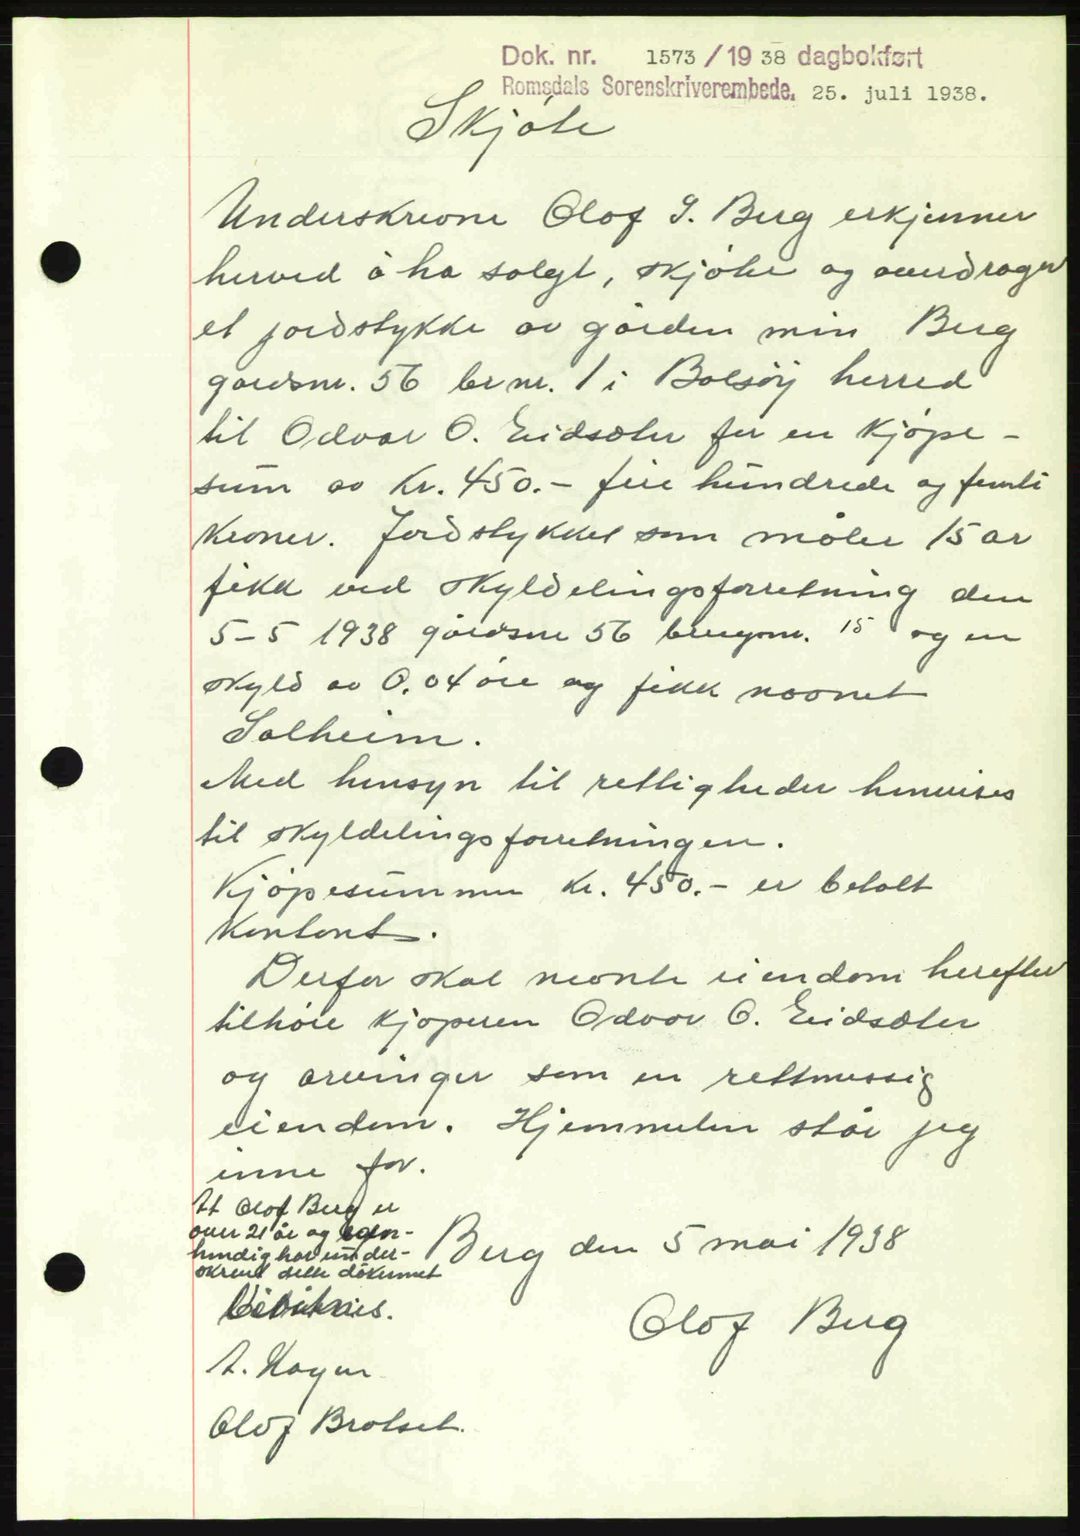 Dok. nr. 1573 / 19 38 dagbokført
Romsdals Sorenskriverembede. 25. juli 1938.
Skjøte
Underskrevne Olof G. Berg erkjenner
herved å ha solgt, skjøte og overdrager
et jordstykke av gården min Berg
gårdsnr. 56 br nr. 1 i Bolsøy herred
til Odvar O. Eidsæter for en kjøpe-
sum av kr. 450.- fire hundrede og femti
kroner. Jordstykket som måler 15 ar
fikk ved skylddelingsforretning den
5-5 1938 gårdsnr 56 bruksnr. 15 og en
skyld av 0.04 øre og fikk navnet
Solheim.
Med hensyn til rettigheder henvises
til skyldelingsforretningen.
Kjøpesummen kr. 450.- er betalt
kontant.
Derfor skal nevnte eiendom herefter
tilhøre kjøperen Odvar O. Eidsæter
og arvinger som en rettmessig
eiendom. Hjemmelen står jeg
inne for.
At Olof Berg er
over 21 år og egen-
hendig har under-
skrevet dette dokument
bevitnes.
Berg den 5 mai 1938
Olof Berg
A. Hagen
Olof Brotset.